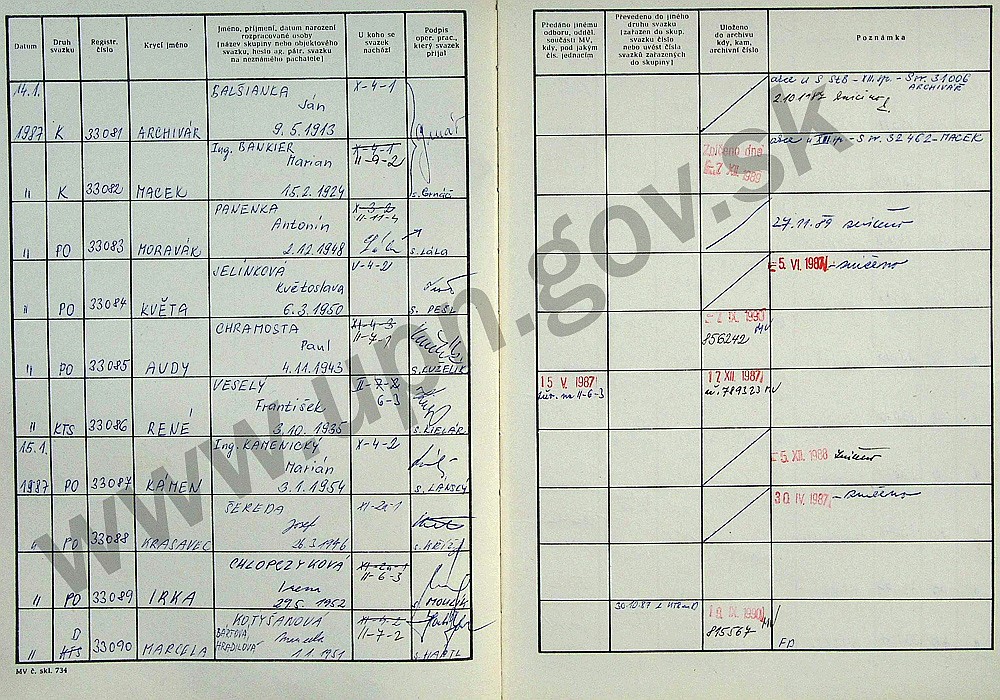 Datum
Druh svazku
Registr. číslo
Krycí jméno
Jméno, příjmení, datum narození rozpracované osoby
[název skupiny nebo objektového svazku, heslo ag. pátr. svazku na neznámého pachatele]
U koho se svazek nachází
Podpis oper. prac., který svazek přijal
Předáno jinému odboru, odděl. součásti MV, kdy, pod jakým čís. jednacím
Převedeno do jiného druhu svazku [zařazen do skup. svazku číslo nebo uvést čísla svazků zařazených do skupiny]
Uloženo do archivu kdy, kam, archivní číslo
Poznámka
14.1. BALŠIANKA X-4-1
Ján
1987 K 33081 ARCHIVÁR 9.5.1913
Š sv. 31006
ARCHIVÁR
Ing. BANKIER X-4-1
Marian II-9-2
" K 33082 MACEK 15.2.1924 s. Grnáč
Zničeno dne
7 XII. 1989
Š sv. 32462-MACEK
PANENKA X-3-2
Antonín II-11-4
" PO 33083 MORAVÁK 2.12.1948 s. LÁLA
27.11.89 zničeno
JELÍNKOVA V-4-2
Květoslava
" PO 33084 KVĚTA 6.3.1950 s. PEŠL
- 5. VI. 1987 - zničeno
CHRAMOSTA XI-4-3
Paul II-7-1
" PO 33085 AUDY 4.11.1943 s. KUŽELÍK
IX. 1990 MV
856242
VESELÝ II-7-2
František 6-3
" KTS 33086 RENÉ 3.10.1935 s. KIELÁR
15 V. 1987
II-6-3
17 XII. 1987
789323 MV
15.1. Ing. KAMENICKÝ X-4-2
Marián
1987 PO 33087 KÁMEN 3.1.1954 s. LÁNSKÝ
- 5. XII. 1988 zničeno
ŠEREDA XI-2a-1
Jozef
" PO 33088 KRASAVEC 26.3.1946 s. KŘÍŽ
30. IV. 1987 - zničeno
CHLOPCZYKOVÁ XI-2a-1
Irena II-6-3
" PO 33089 IRKA 29.5.1952 s. MOULÍK
KOTYŠANOVÁ
BÁRTOVÁ, Marcela II-7-2
D HRADILOVÁ
" KTS 33090 MARCELA 1.1.1951 s. HARTL
30.10.87
IX. 1990 MV
815567
FD
MV č. skl. 734
www.upn.gov.sk